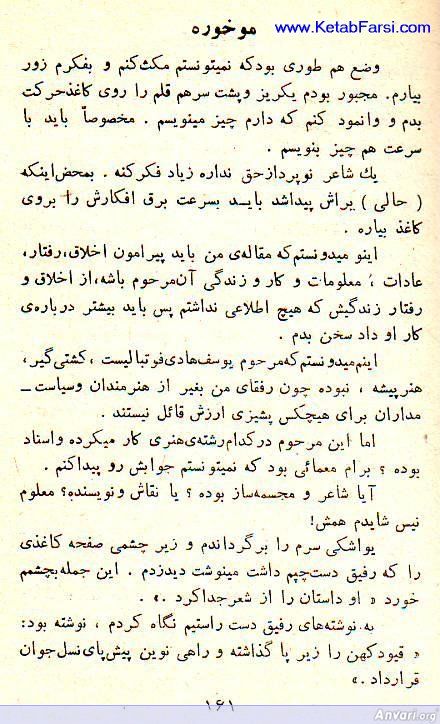 www.KetabFarsi.com
موخوره
وضع هم طوری بودکه نمیتونستم مکث‌کنم و بفکرم زور
بیارم. مجبور بودم یکریز وپشت سرهم قلم را روی کاغذحرکت
بدم و وانمود کنم که دارم چیز مینویسم . مخصوصاً باید با
سرعت هم چیز بنویسم .
یك شاعر نوپردازحق نداره زیاد فکرکنه . بمحض‌اینکه
( حالی ) براش پیداشد بایــد بسرعت برق افکارش را بروی
کاغذ بیاره .
اینو میدونستم‌که مقاله‌ی من باید پیرامون اخلاق،رفتار،
عادات ، معلومات و کار و زندگی آن‌مرحوم باشه،از اخلاق و
رفتار زندگیش که هیچ اطلاعی نداشتم پس باید بیشتر درباره‌ی
کار او داد سخن بدم .
اینم‌میدونستم‌که‌مرحوم یوسف‌هادی‌فوتبالیست ، کشتی‌گیر،
هنرپیشه ، نبوده چون رفقای من بغیر از هنرمندان وسیاست‌ـ
مداران برای هیچکس پشیزی ارزش قائل نیستند .
اما این مرحوم درکدام‌رشته‌ی‌هنری کار میکرده واستاد
بوده ؟ برام معمائی بود که نمیتونستم جوابش رو پیداکنم .
آیا شاعر و مجسمه‌ساز بوده ؟ یا نقاش ونویسنده؟ معلوم
نیس شایدم همش!
یواشکی سرم را برگرداندم و زیر چشمی صفحه کاغذی
را که رفیق دست‌چپم داشت مینوشت دیدزدم . این جمله‌بچشمم
خورد « او داستان را از شعرجداکرد .» .
به نوشته‌های رفیق دست راستیم نگاه کردم ، نوشته بود:
« قیودکهن را زیر پا گذاشته و راهی نوین پیش‌پای‌نسل‌جوان
قرارداد .»
۱۶۱
Anvari.org